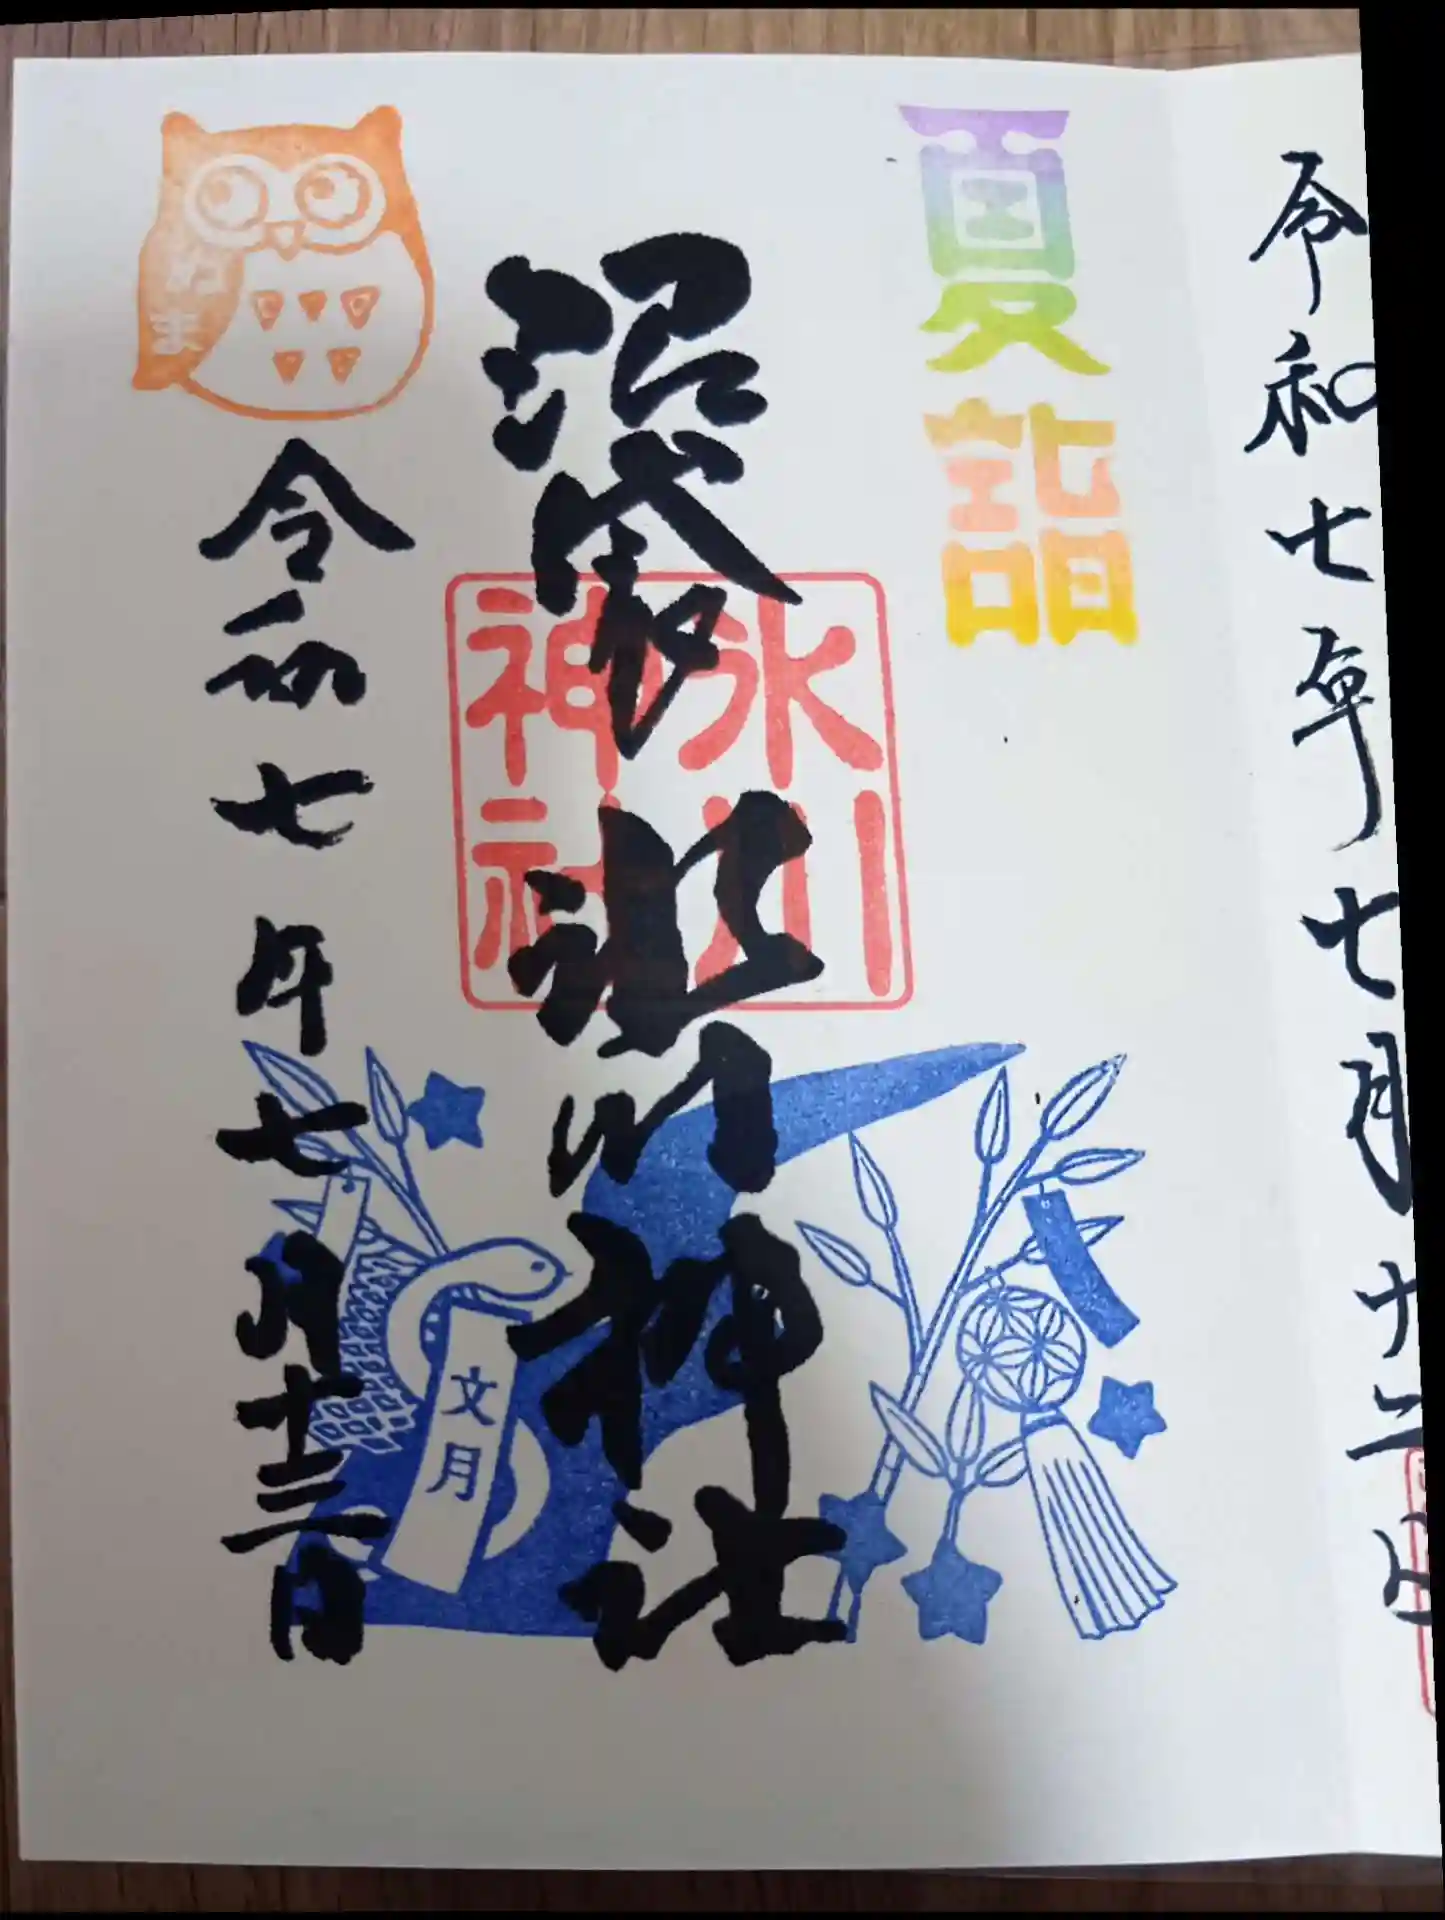 令和七年七月十二日
夏詣
沼袋氷川神社
氷川
神社
文月
ぬま
令和七年七月十三日